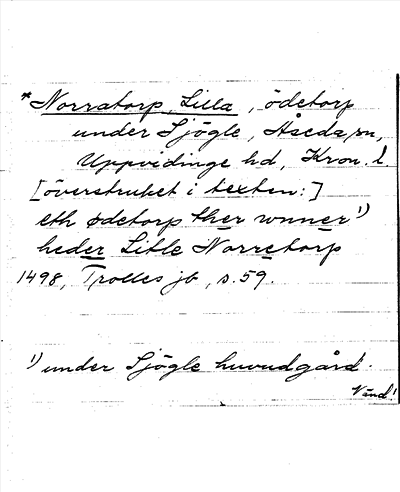 *Norratorp, Lilla, ödetorp
under Sjögle, Åseda sn,
Uppvidinge hd, Kron. l.
[överstruket i texten:]
eth ødetorp ther wnner¹)
heder Litle Norretorp
1498, Trolles jb, s. 59.
¹) under Sjögle huvudgård.
Vänd!